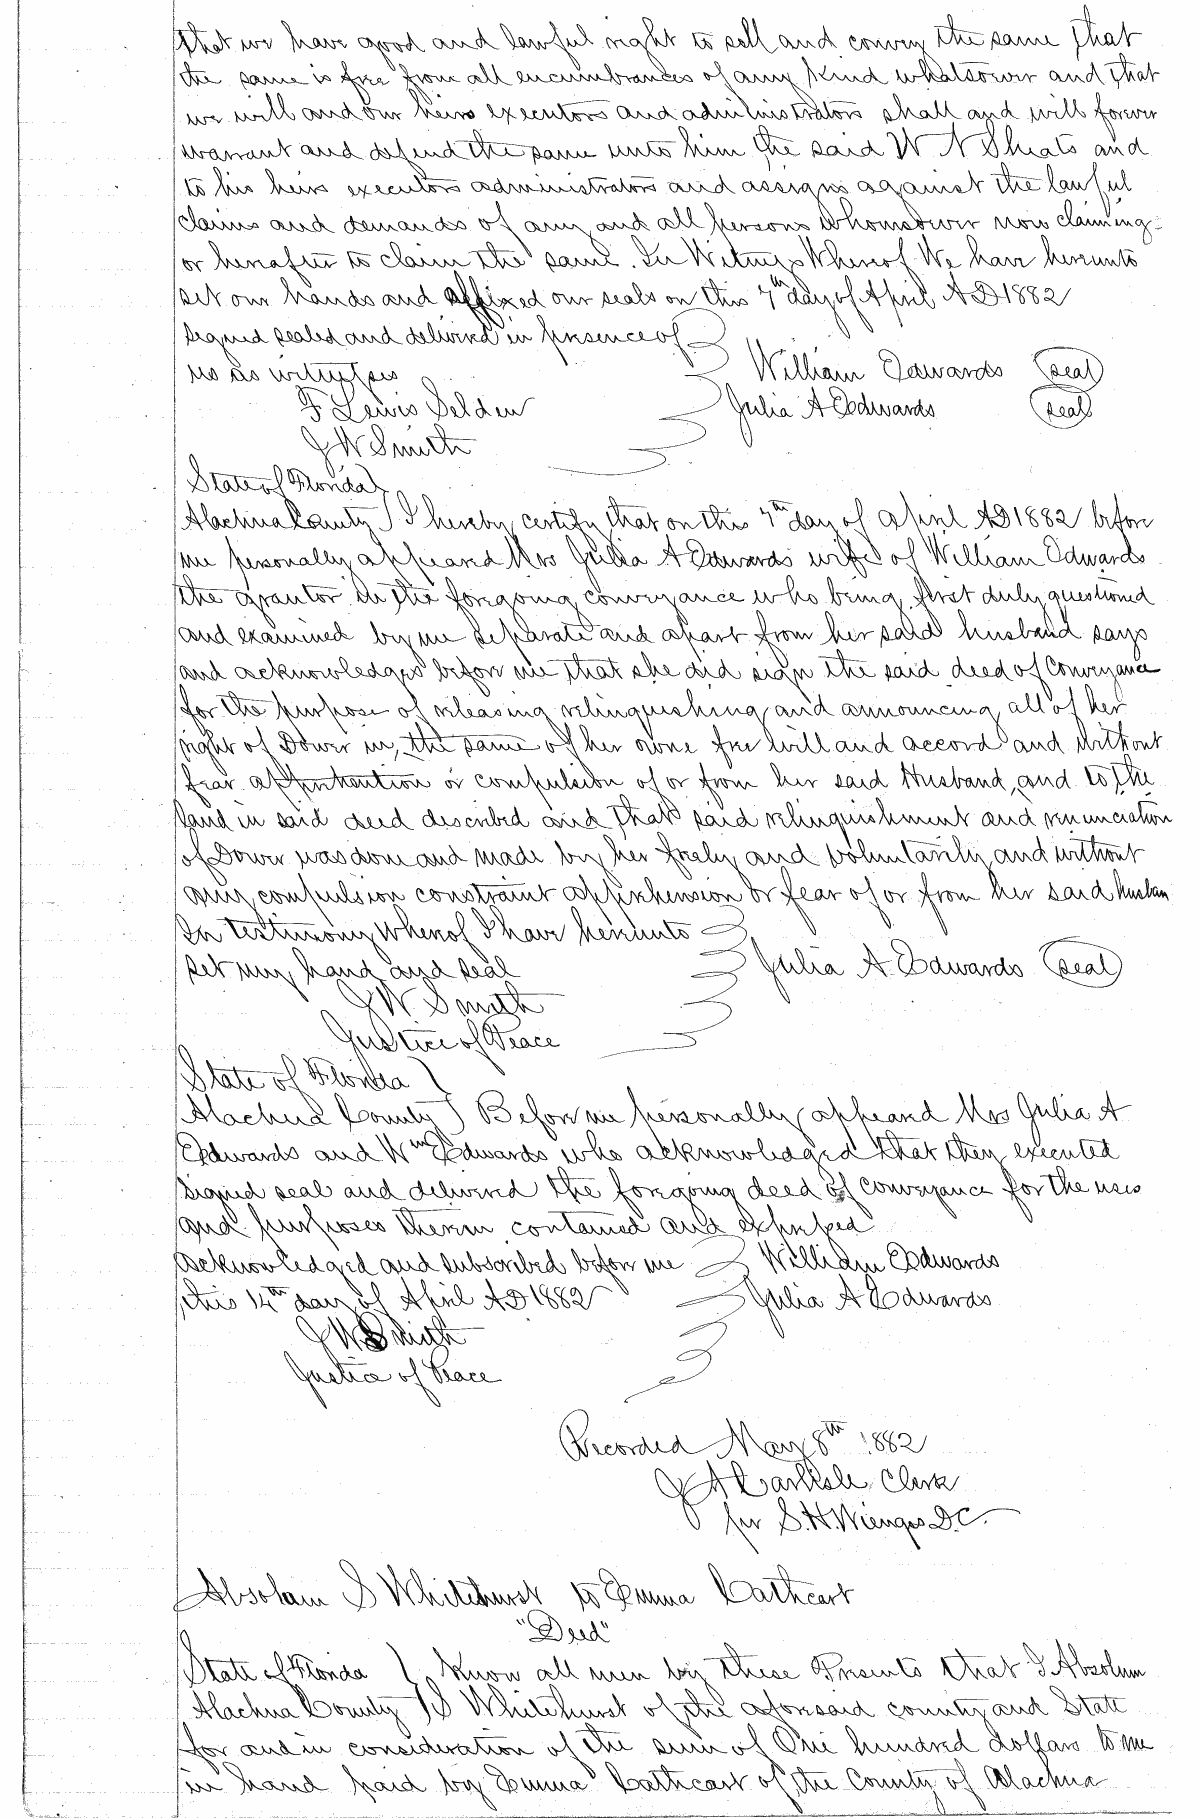 that we have good and lawful right to sell and convey the same that
the same is free from all encumbrances of any kind whatsoever and that
we will and our heirs executors and administrators shall and will forever
warrant and defend the same unto him the said W N Sheats and
to his heirs executors administrators and assigns against the lawful
claims and demands of any and all persons whomsoever now claiming
or hereafter to claim the same. In Witness Whereof We have hereunto
set our hands and affixed our seals on this 7th day of April AD 1882
signed sealed and delivered in presence of
us as witnesses William Edwards (seal)
F Lewis Selden Julia A Edwards (seal)
J W Smith
State of Florida
Alachua County I hereby certify that on this 7th day of April AD 1882 before
me personally appeared Mrs Julia A Edwards wife of William Edwards
the grantor in the foregoing conveyance who being first duly questioned
and examined by me separate and apart from her said husband says
and acknowledges before me that she did sign the said deed of Conveyance
for the purpose of releasing relinquishing and announcing all of her
right of Dower in, the same of her owne free will and accord and without
fear apprehention or compulsion of or from her said Husband, and to the
land in said deed described and that said relinquishment and renunciation
of Dower was done and made by her freely and voluntarily and without
any compulsion constraint apprehension or fear of or from her said husban
In testimony Whereof I have hereunto
set my hand and seal Julia A. Edwards (seal)
J W Smith
Justice of Peace
State of Florida
Alachua County Before me personally appeared Mrs Julia A
Edwards and Wm Edwards who acknowledged that they executed
signed seal and delivered the foregoing deed of conveyance for the uses
and purposes therein contained and expressed
acknowledged and subscribed before me William Edwards
this 14th day of April AD 1882 Julia A Edwards
J W Smith
Justice of Peace
Recorded May 8th 1882
J A Carlisle Clerk
per S. H. Wienges D.C.
Absolam S Whitehurst to Emma Cathcart
"Deed"
State of Florida Know all men by these Presents that I Absolum
Alachua County S Whitehurst of the aforesaid county and State
for and in consideration of the sum of One hundred dollars to me
in hand paid by Emma Cathcart of the County of Alachua